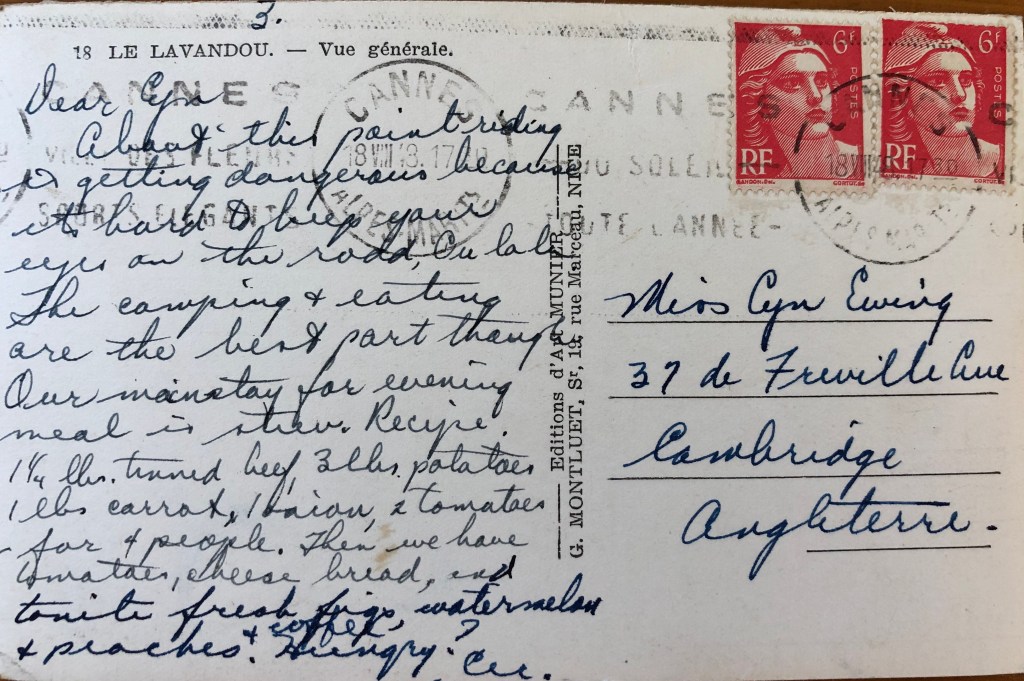 3.
18 LE LAVANDOU. — Vue générale.
Dear Cyn
About this point riding
is getting dangerous because
it's hard to keep your
eyes on the road, Ou la la
The camping & eating
are the best part though
Our mainstay for evening
meal is stew. Recipe.
1¼ lbs. tinned beef, 3 lbs. potatoes
1 lbs carrots, 1 onion, 2 tomatoes
- for 4 people. Then we have
tomatoes, cheese bread, and
tonite fresh figs, watermelon
& peaches. & coffee, Hungry?
Cec.
Editions d'Art MUNIER
G. MONTLUET, Sr, 19, rue Marceau, NICE
CANNES
VILLE DES FLEURS
SPORTS ELEGANTS
CANNES
18 VIII 48. 17 30
ALPES MARITIMES
CANNES
DU SOLEIL
TOUTE L'ANNÉE
6F
POSTES
RF
GANDON
CORTOT
6F
POSTES
RF
GANDON
CORTOT
Miss Cyn Ewing
37 de Freville Ave
Cambridge
Angleterre.